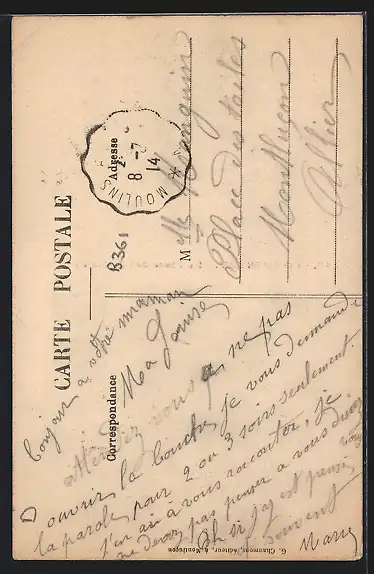 CARTE POSTALE
Correspondance
Adresse
MOULINS
8 - 7
14
B361
M lle Manguin
Place des toiles
Montluçon
Allier
Bonjour a votre maman
Ma Louise
attendez vous a ne pas
ouvrir la bouche je vous demande
la parole pour 2 ou 3 soirs seulement.
j'en ai a vous raconter, je
ne devez pas penser a vous dire
Oh si j'ai pensé
souvent
Marie
G. Chaumont, éditeur, à Montluçon